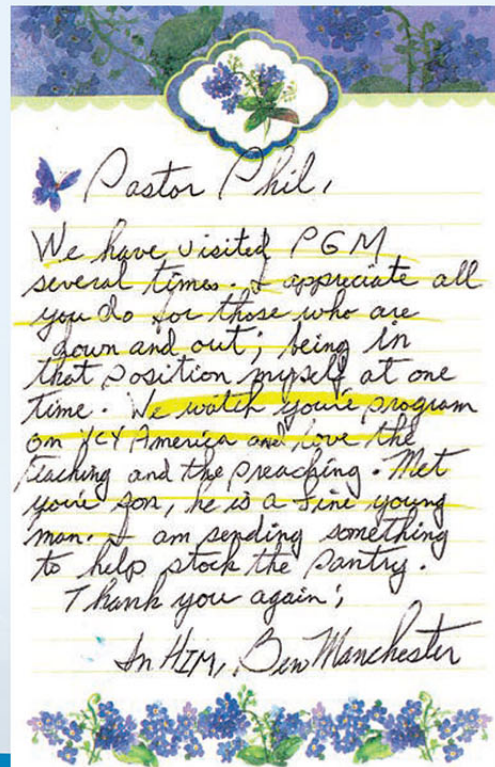 Pastor Phil,
We have visited PGM
several times. I appreciate all
you do for those who are
down and out; being in
that position myself at one
time. We watch you're program
on YCY America and love the
teaching and the preaching. Met
you're son, he is a fine young
man. I am sending something
to help stock the pantry.
Thank you again;
In HIM, Ben Manchester